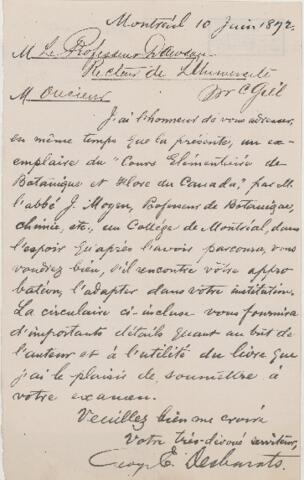 Montréal 10 Juin 1872.
M. Le Professeur Dawson
Recteur de L'Université
McGill
Monsieur
J'ai l'honneur de vous adresser,
en même temps que la présente, un ex-
emplaire du "Cours Elémentaire de
Botanique et Flore du Canada," par M.
l'abbé J. Moyen, Professeur de Botanique,
chimie, etc., au Collége de Montréal, dans
l'espoir qu'après l'avoir parcouru, vous
voudrez bien, s'il rencontre vôtre appro-
bation, l'adapter dans votre institution.
La circulaire ci-incluse vous fournira
d'importants détails quant au but de
l'auteur et à l'utilité du livre que
j'ai le plaisir de soumettre à
votre examen.
Veuillez bien me croire
Votre très-dévoué serviteur,
George E. Desbarats